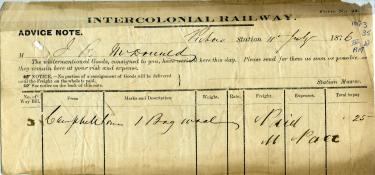 Form No. 
INTERCOLONIAL RAILWAY.
ADVICE NOTE.
Station 11 July 1876
M J. McDonald
The undermentioned Goods, consigned to you, have arrived here this day. Please send for them as soon as possible, as they remain here at your risk and expense.
NOTICE.—No portion of a consignment of Goods will be delivered until the Freight on the whole is paid.
See notice on the back of this note.
Station Master.
No. Way Bill. From Marks and Description Weight. Rate. Freight. Total to pay
3 Campbellton 1 Bag wool Paid 25